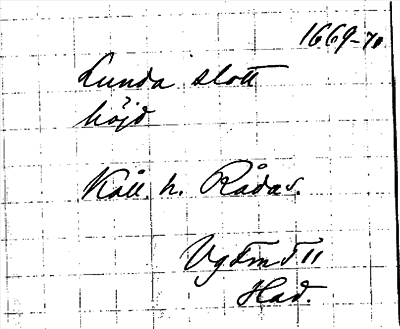 1669-70.
Lunda slott
höjd
Kåll. h. Råda s.
Vg Fm T II
Had.